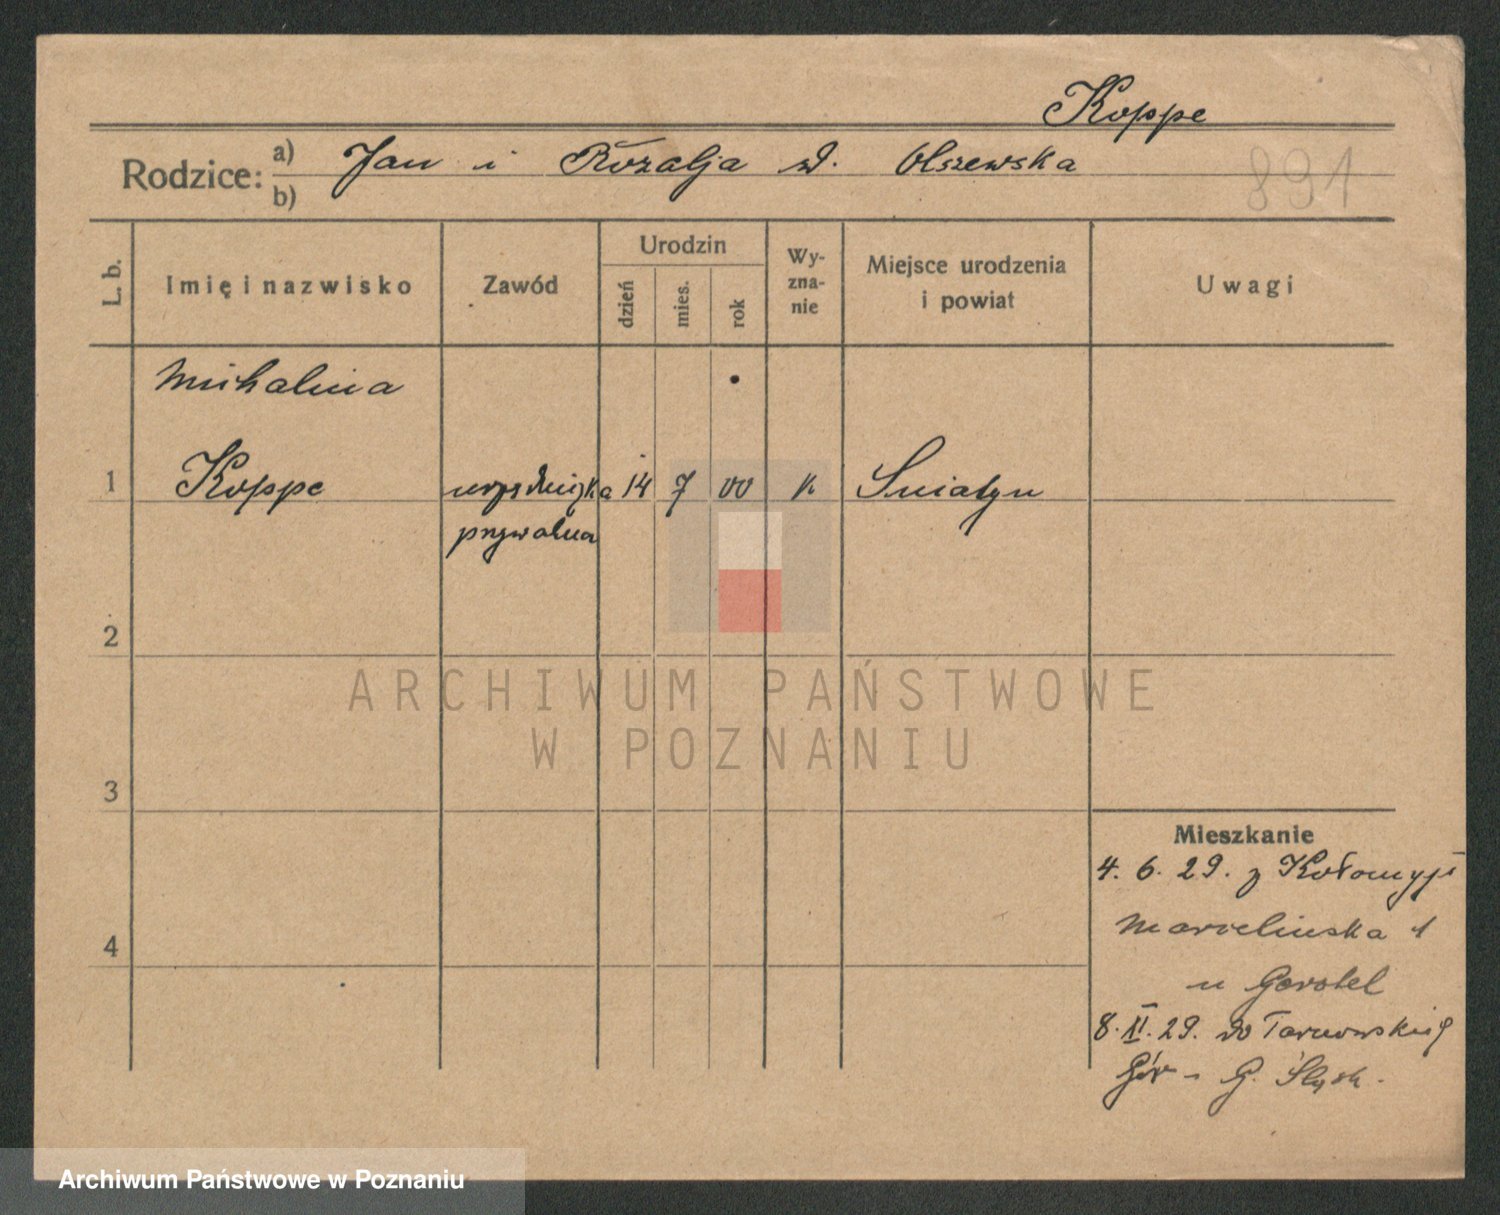 Koppe
Rodzice: a) Jan i Rozalja d. Olszewska
b)
891
L. b.
Imię i nazwisko
Zawód
Urodzin
dzień
mies.
rok
Wy-
zna-
nie
Miejsce urodzenia
i powiat
Uwagi
Michalina
1 Koppe urzędniczka 14 7 00 k Śniatyn
prywatna
2
ARCHIWUM PAŃSTWOWE
W POZNANIU
3
Mieszkanie
4. 6. 29. z Kołomyji
Marcelińska 1
4
u Gerstel
8. II. 29. do Tarnowskich
Gór - G. Śląsk.
Archiwum Państwowe w Poznaniu